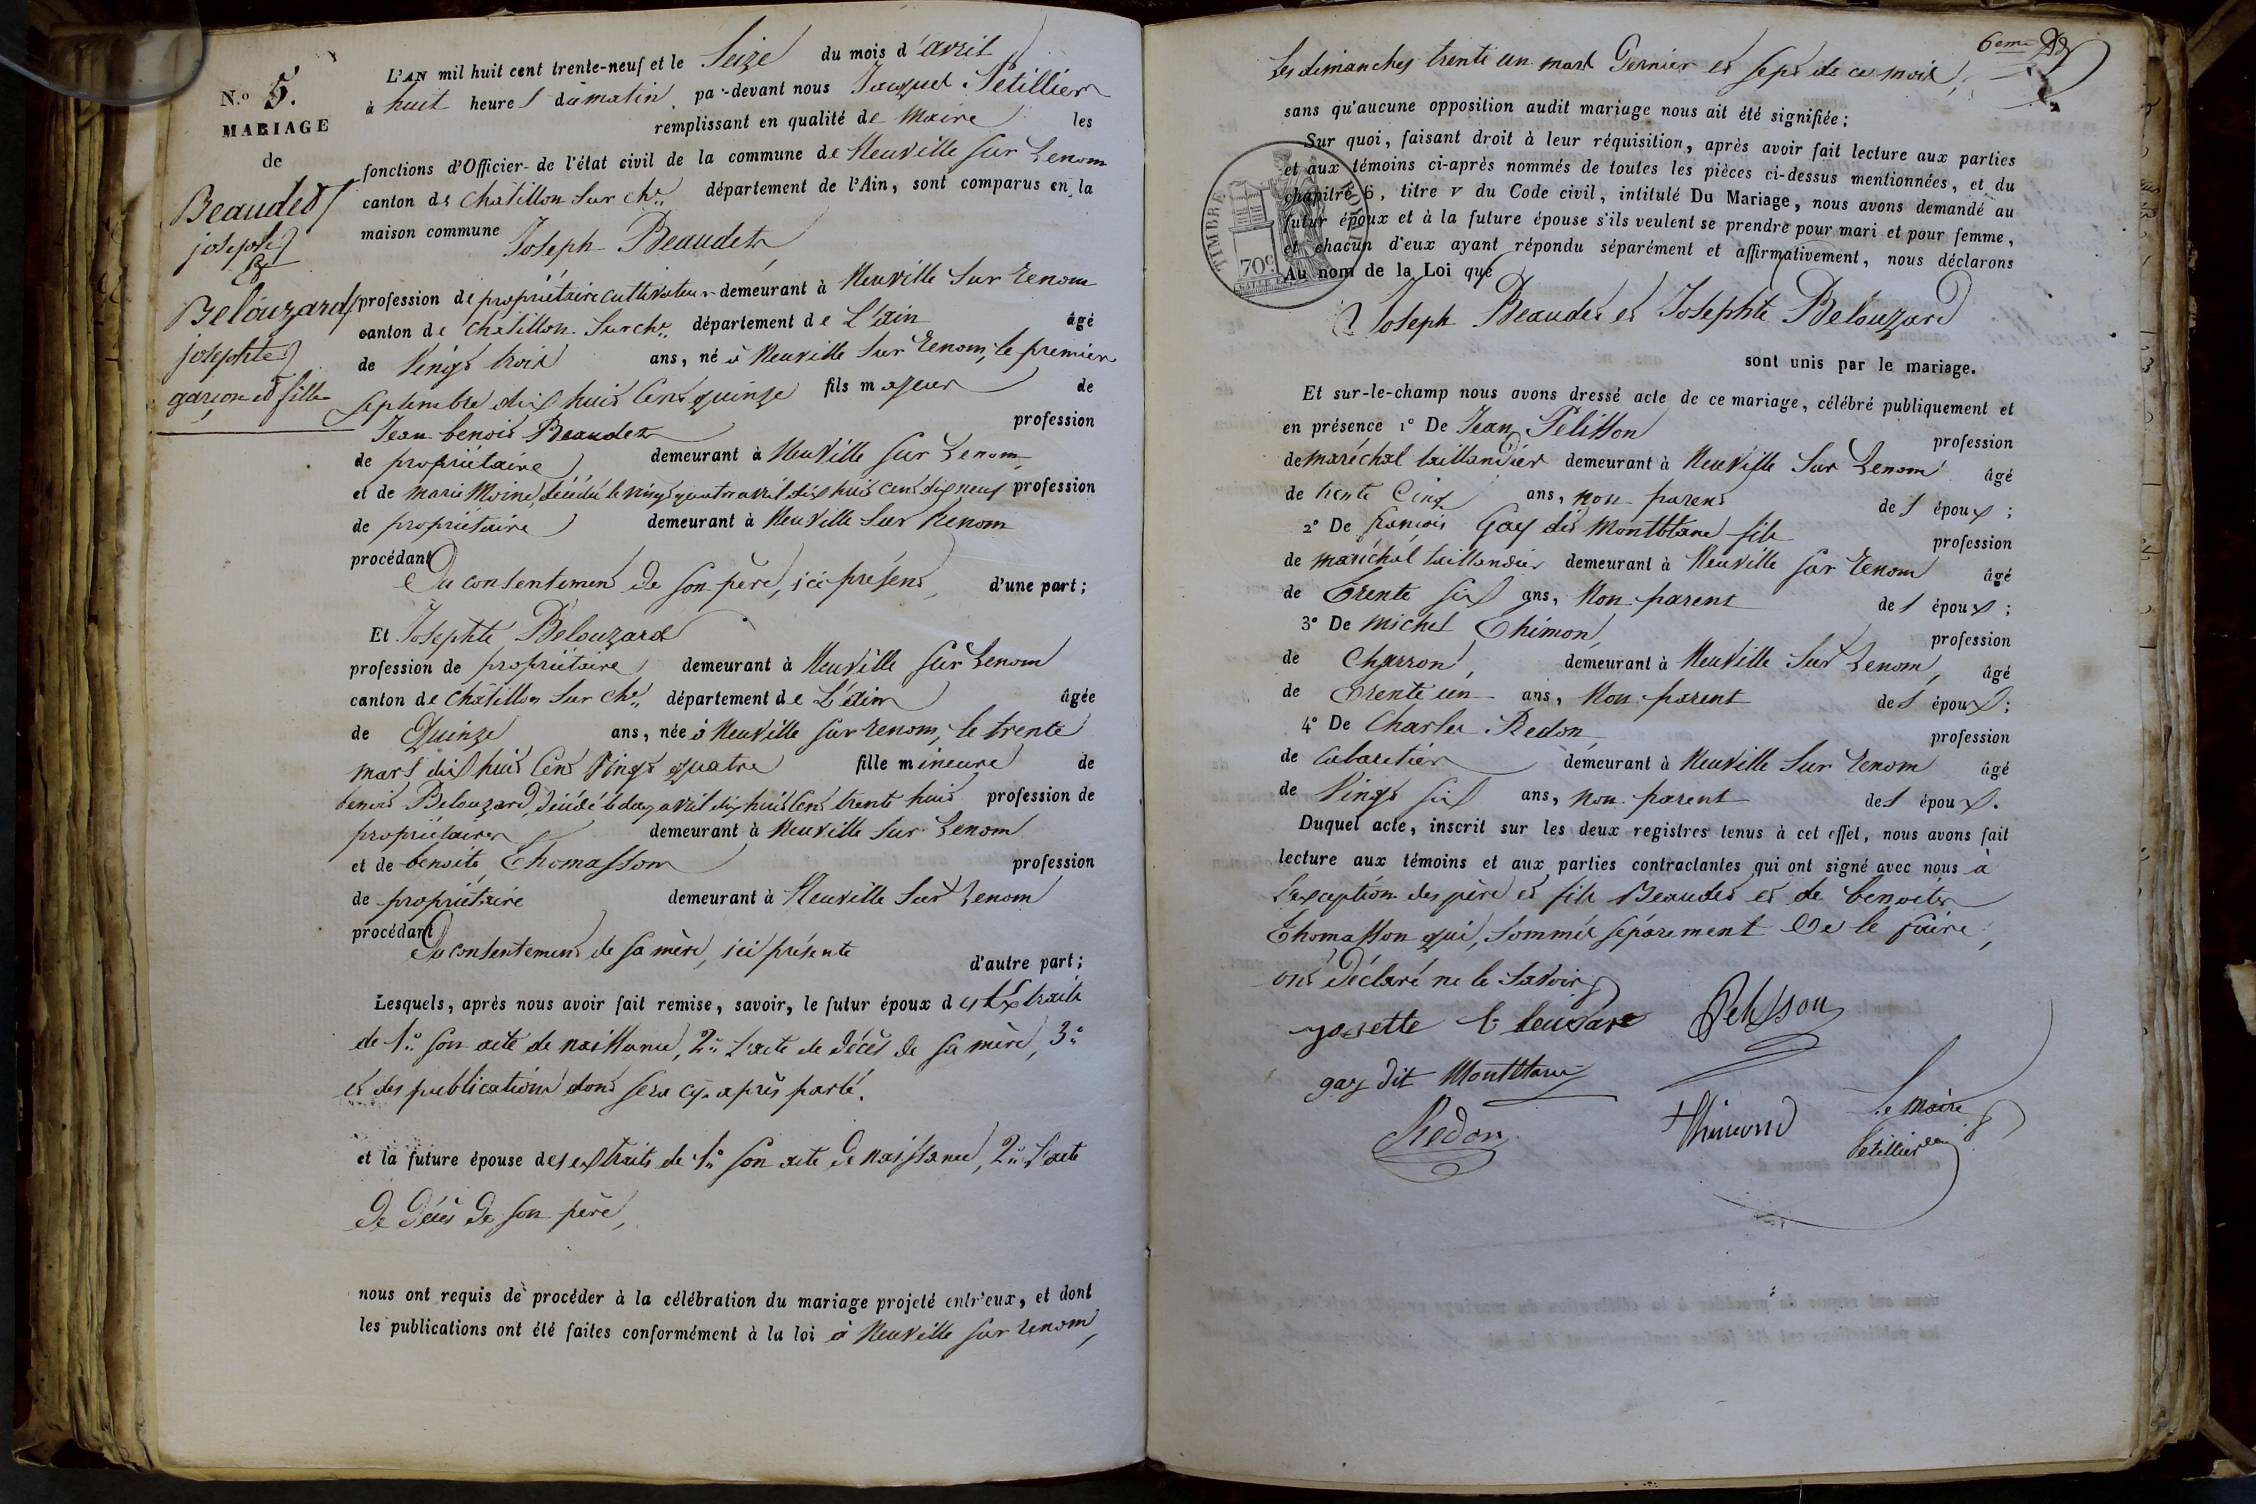 N.o 5.
MARIAGE
de
Beaudet
joseph
Et
Belouzard
josephte
garçon et fille
L'AN mil huit cent trente-neuf et le Seize du mois d'avril
à huit heures du matin, par-devant nous Jacques Petillier
remplissant en qualité de Maire les
fonctions d'Officier de l'état civil de la commune de Neuville sur Renom
canton de Châtillon sur Che. département de l'Ain, sont comparus en la
maison commune Joseph Beaudet
profession de propriétaire cultivateur demeurant à Neuville sur Renom
canton de Châtillon sur che. département de L'ain âgé
de Vingt trois ans, né à Neuville sur Renom, le premier
septembre dix huit Cent quinze fils majeur de
Jean benoit Beaudet profession
de propriétaire demeurant à Neuville sur Renom,
et de marie Moine, décédée le vingt quatre avril dix huit cent dix neuf profession
de propriétaire demeurant à Neuville sur Renom
procédant Du consentement de son père, ici présent, d'une part;
Et Josephte Belouzard
profession de propriétaire demeurant à Neuville sur Renom
canton de Châtillon sur che. département de L'ain âgée
de Quinze ans, née à Neuville sur Renom, le trente
mars dix huit Cent Vingt quatre fille mineure de
benoit Belouzard, décédé le deux avril dix huit Cent trente huit profession de
propriétaire demeurant à Neuville sur Renom
et de benoite Thomasson profession
de propriétaire demeurant à Neuville sur Renom
procédant Du consentement de sa mère, ici présente
d'autre part;
Lesquels, après nous avoir fait remise, savoir, le futur époux des Extraits
de 1.o son acte de naissance, 2.o L'acte de décès de sa mère, 3.o
et des publications dont sera cy-après parlé.
et la future épouse des extraits de 1.o son acte de naissance, 2.o L'acte
de décès de son père,
nous ont requis de procéder à la célébration du mariage projeté entr'eux, et dont
les publications ont été faites conformément à la loi à Neuville sur Renom,
6eme
Les dimanches trente un mars Dernier et sept de ce mois,
sans qu'aucune opposition audit mariage nous ait été signifiée;
Sur quoi, faisant droit à leur réquisition, après avoir fait lecture aux parties
et aux témoins ci-après nommés de toutes les pièces ci-dessus mentionnées, et du
chapitre 6, titre v du Code civil, intitulé Du Mariage, nous avons demandé au
futur époux et à la future épouse s'ils veulent se prendre pour mari et pour femme,
et chacun d'eux ayant répondu séparément et affirmativement, nous déclarons
Au nom de la Loi que
TIMBRE
70c
Joseph Beaudet et Josephte Belouzard
sont unis par le mariage.
Et sur-le-champ nous avons dressé acte de ce mariage, célébré publiquement et
en présence 1o De Jean Pelisson profession
de maréchal taillandier demeurant à Neuville sur Renom âgé
de trente Cinq ans, non parent des époux;
2o De françois Gay dit Montblanc fils profession
de maréchal taillandier demeurant à Neuville sur Renom âgé
de Trente six ans, Non parent des époux;
3o De michel Thimon, profession
de Charron, demeurant à Neuville sur Renom, âgé
de Trente un ans, Non parent des époux;
4o De Charles Redon profession
de Cabaretier demeurant à Neuville sur Renom âgé
de Vingt six ans, non parent des époux.
Duquel acte, inscrit sur les deux registres tenus à cet effet, nous avons fait
lecture aux témoins et aux parties contractantes qui ont signé avec nous à
L'exception des père et fils Beaudet et de benoite
Thomasson qui, sommés séparement De le faire,
ont Déclaré ne le savoir
josette Pelisson
gay dit Montblanc
Redon Thimond Le maire
Petillier